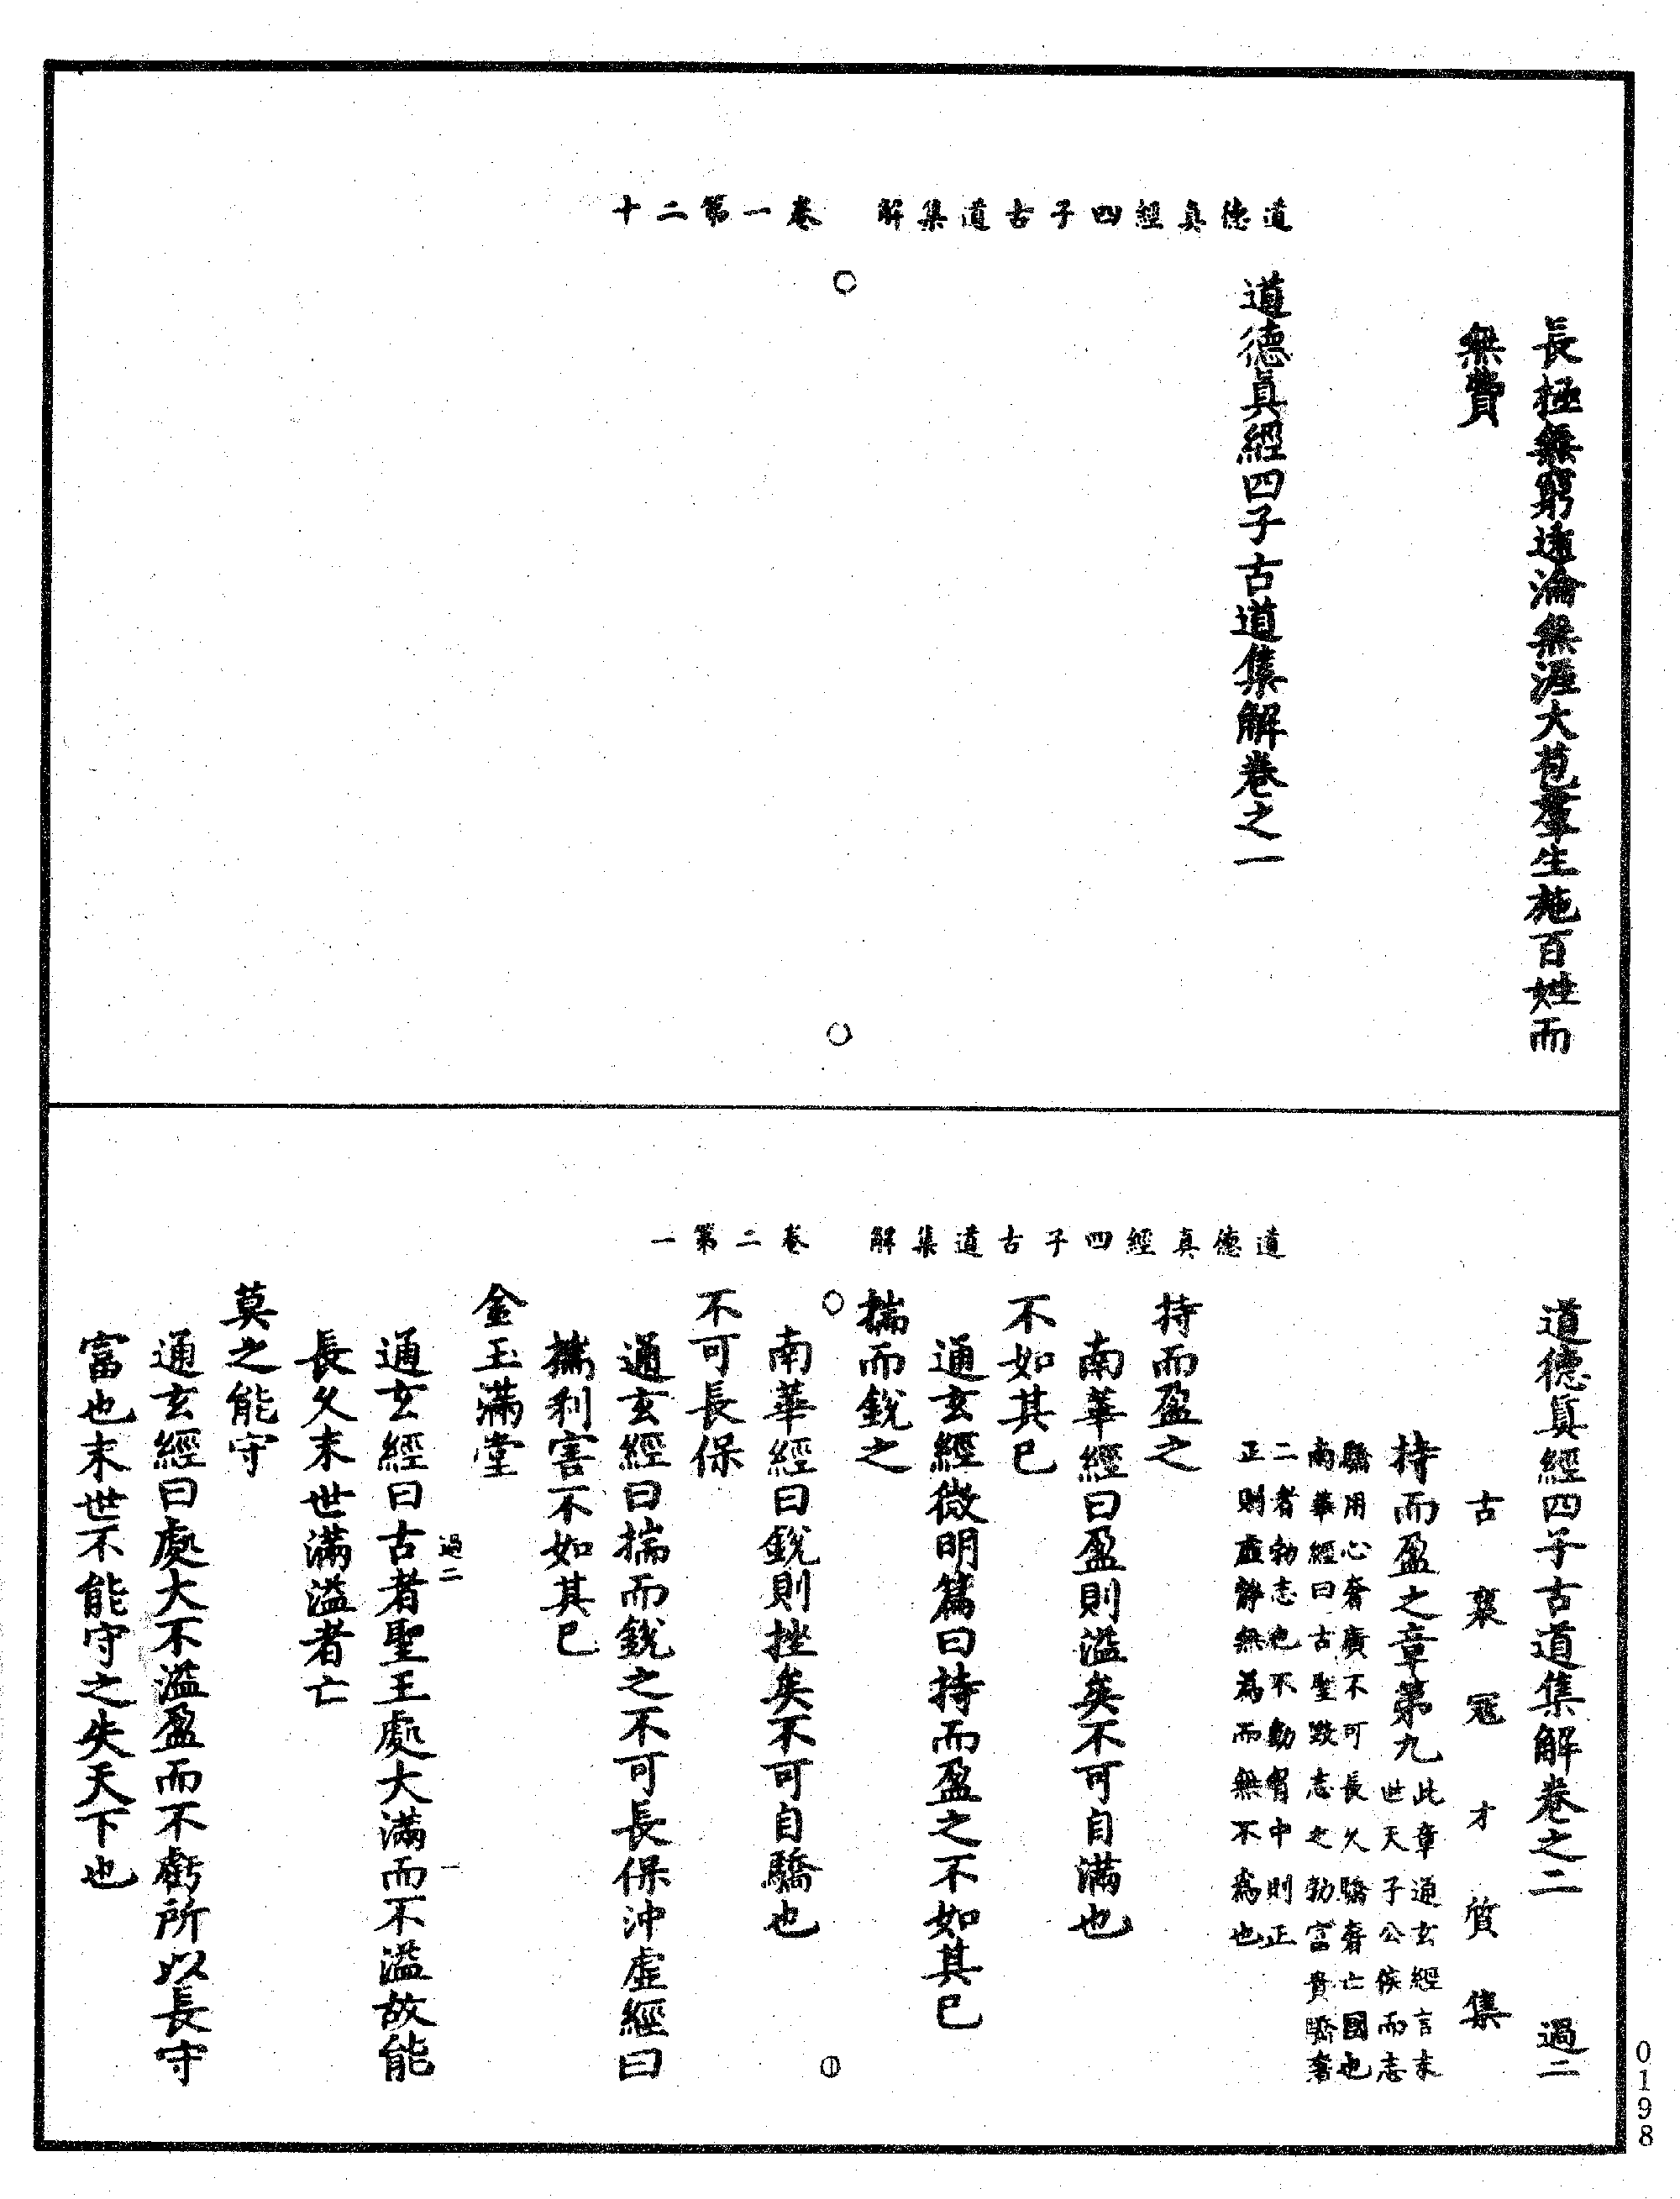 道德真經四子古道集解　卷一第二十
長極無窮遠淪無涯大苞羣生施百姓而
無費
道德眞經四子古道集解卷之一
道德真經四子古道集解　卷二第一
道德眞經四子古道集解卷之二　過二
古襄寇才質集
持而盈之章第九
此章通玄經言末
世天子公侯而志
驕用心奢廣不可長久驕奢亡國也
南華經曰古聖歎志之勃富貴驕奢
二者勃志也不動胷中則正
正則虛靜無為而無不為也
持而盈之
南華經曰盈則溢矣不可自滿也
不如其已
通玄經微明篇曰持而盈之不如其已
揣而銳之
南華經曰銳則挫矣不可自驕也
不可長保
通玄經曰揣而銳之不可長保沖虛經曰
揣利害不如其已
金玉滿堂
過二　一
通玄經曰古者聖王處大滿而不溢故能
長久末世滿溢者亡
莫之能守
通玄經曰處大不溢盈而不虧所以長守
富也末世不能守之失天下也
0198